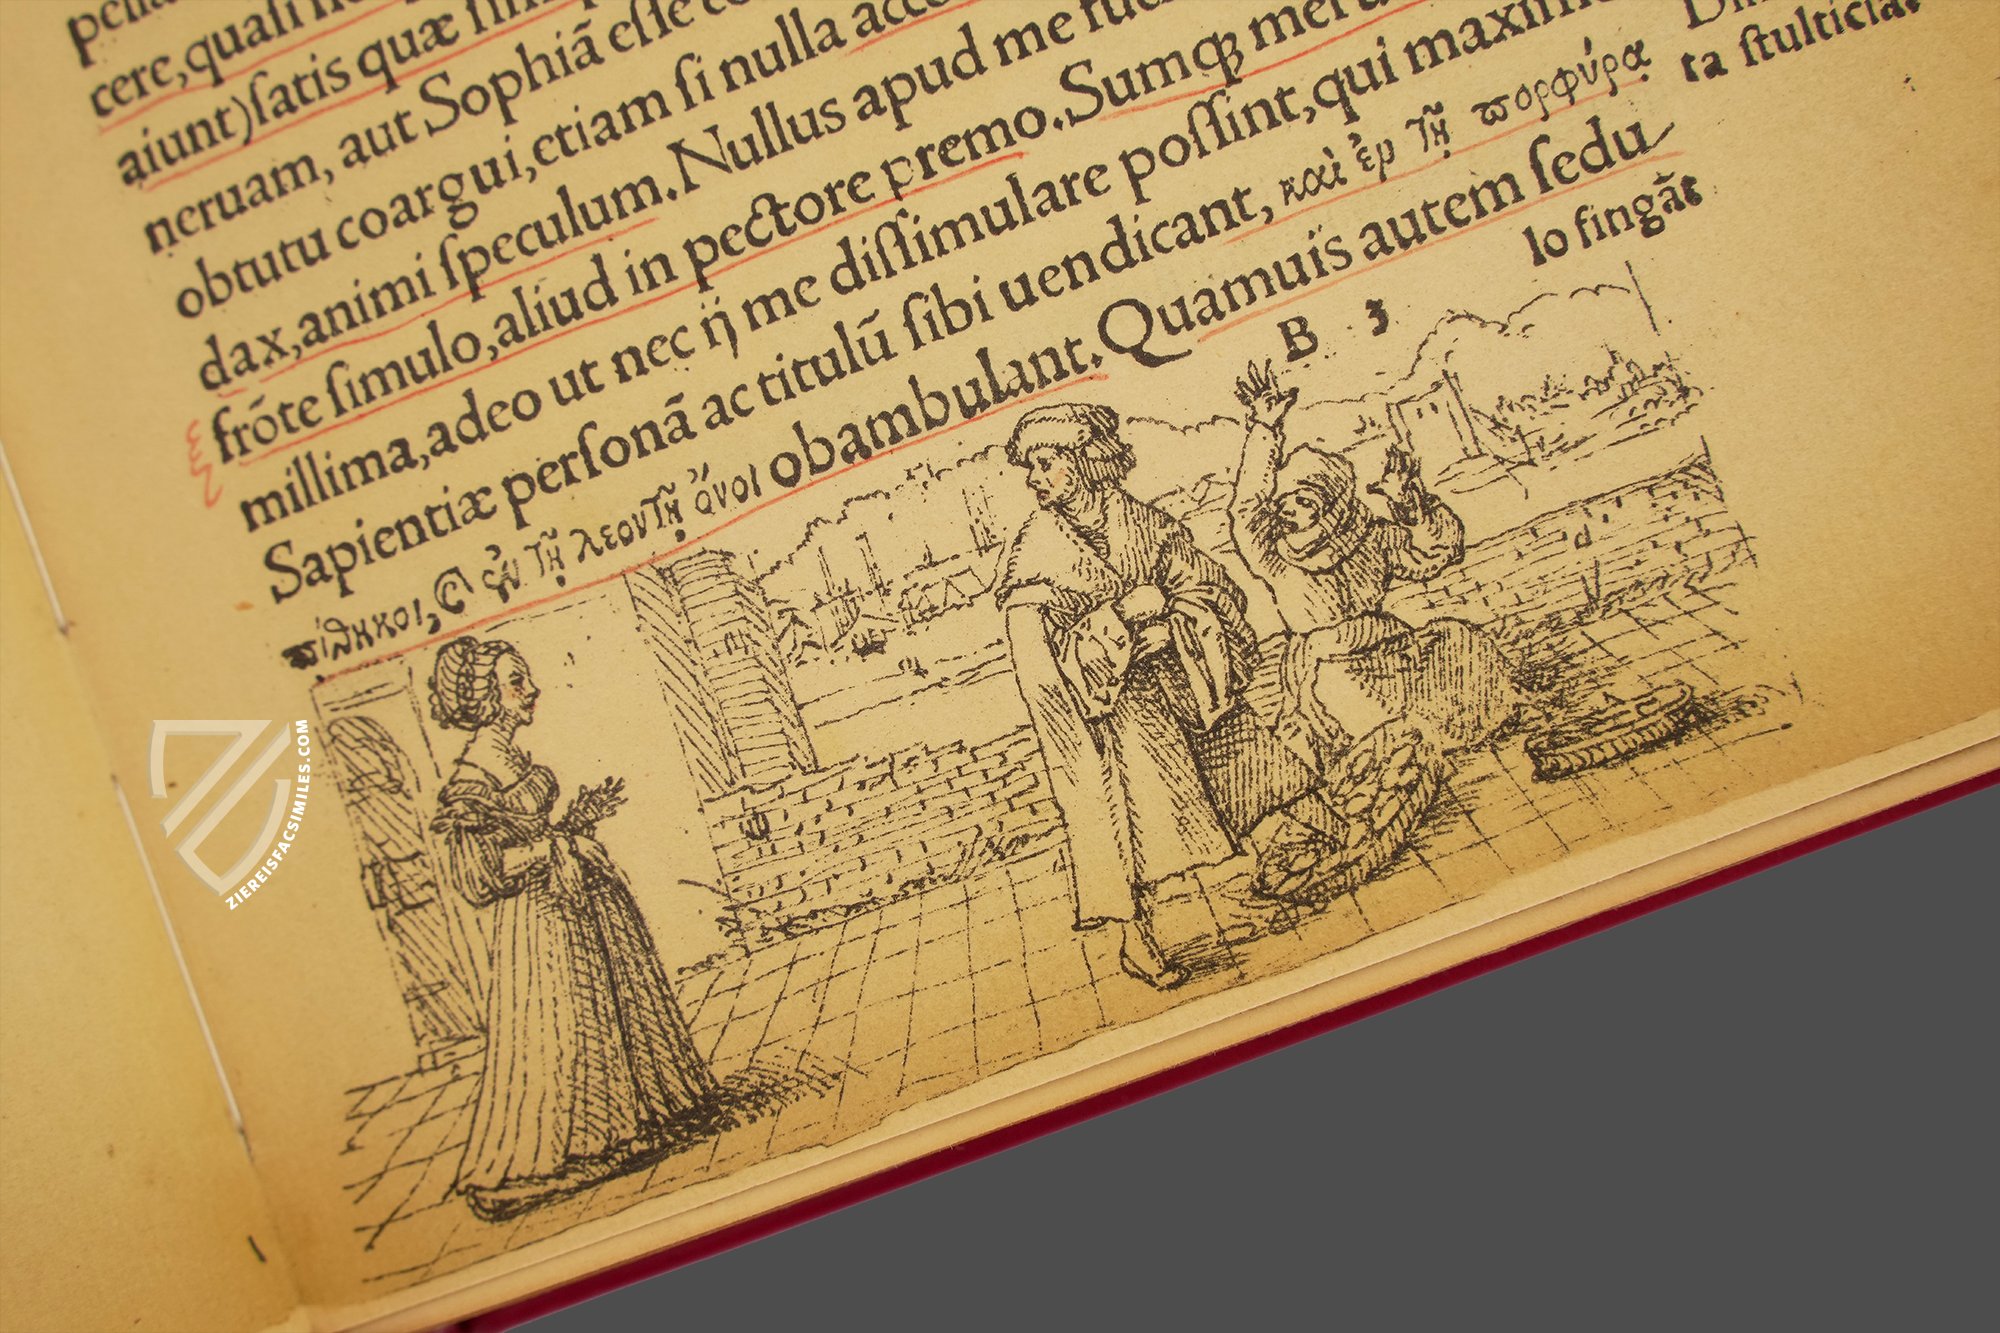 cere, quasi
aiunt) satis quæ
neruam, aut Sophiã esse
obtutu coargui, etiam si nulla
dax, animi speculum. Nullus apud me
frõte simulo, aliud in pectore premo. Sumqꝫ
millima, adeo ut nec ij me dissimulare possint, qui
Sapientiæ personã ac titulũ sibi uendicant, καὶ ἐν τῇ πορφύρᾳ
πίθηκοι, & ἐν τῇ λεοντῇ ὄνοι obambulant. Quamuis autem sedu
lo fingãt
B 3
ta stulticiæ
ZIEREISFACSIMILES.COM